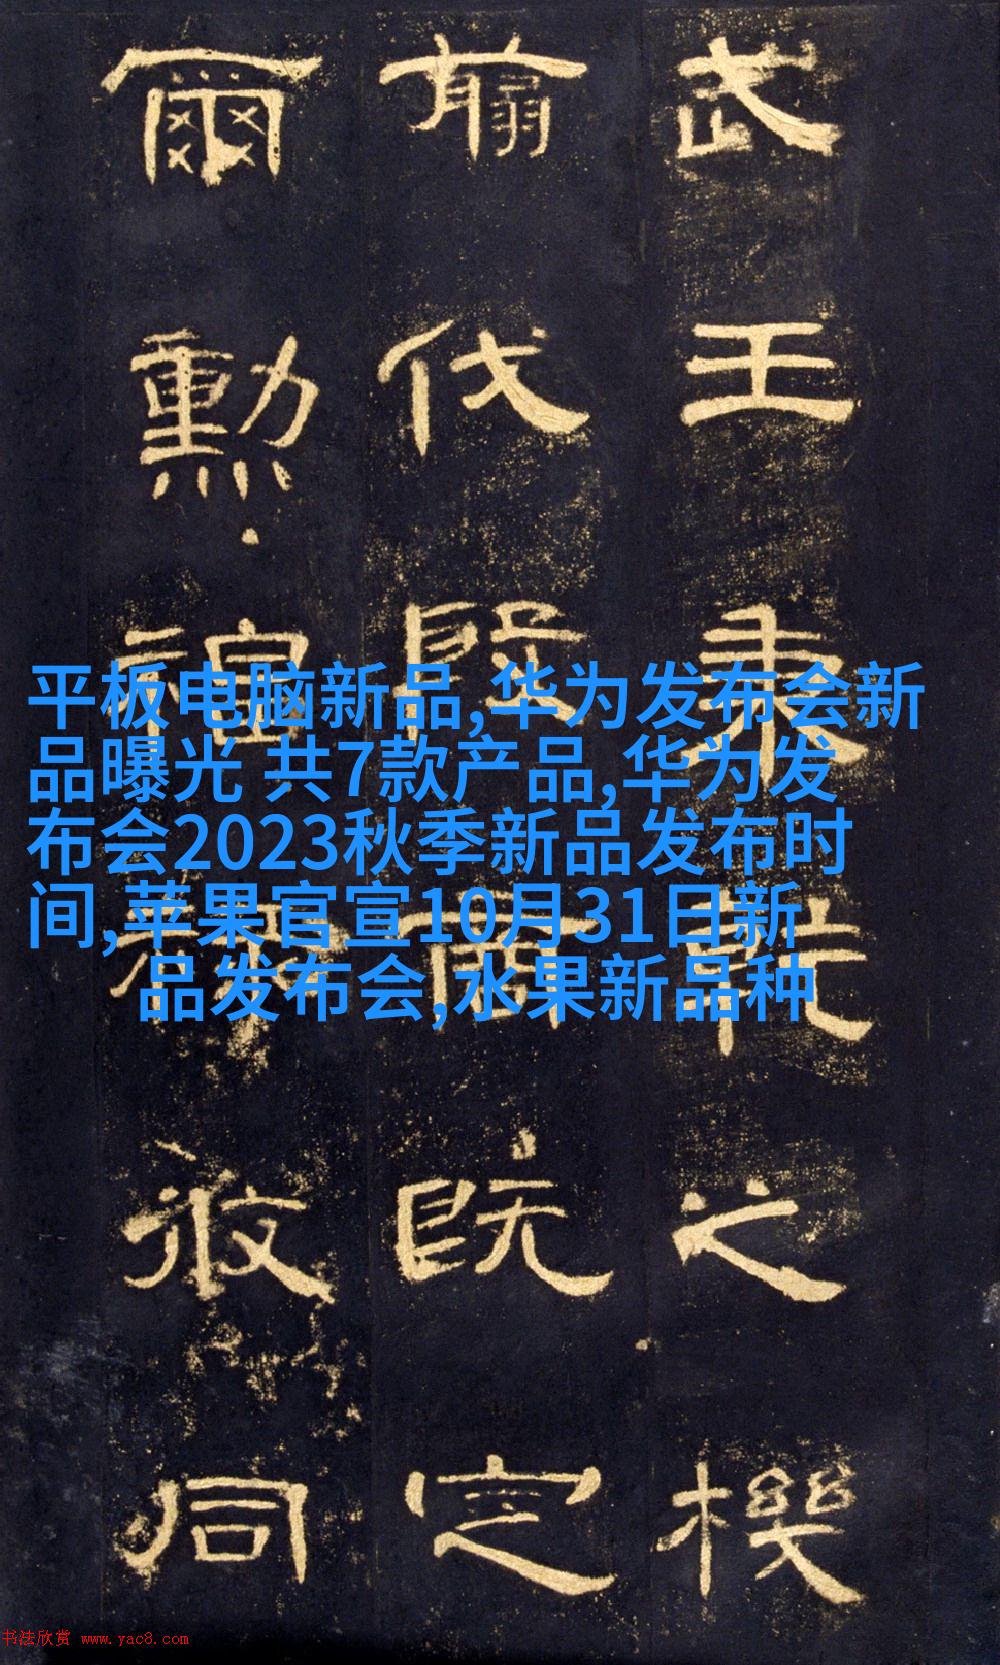 武王秉乾之機
翦伐殷商既定
爾勳福祿攸同
平板电脑新品,华为发布会新
品曝光 共7款产品,华为发
布会2023秋季新品发布时
间,苹果官宣10月31日新
品发布会,水果新品种
书法欣赏 www.yac8.com